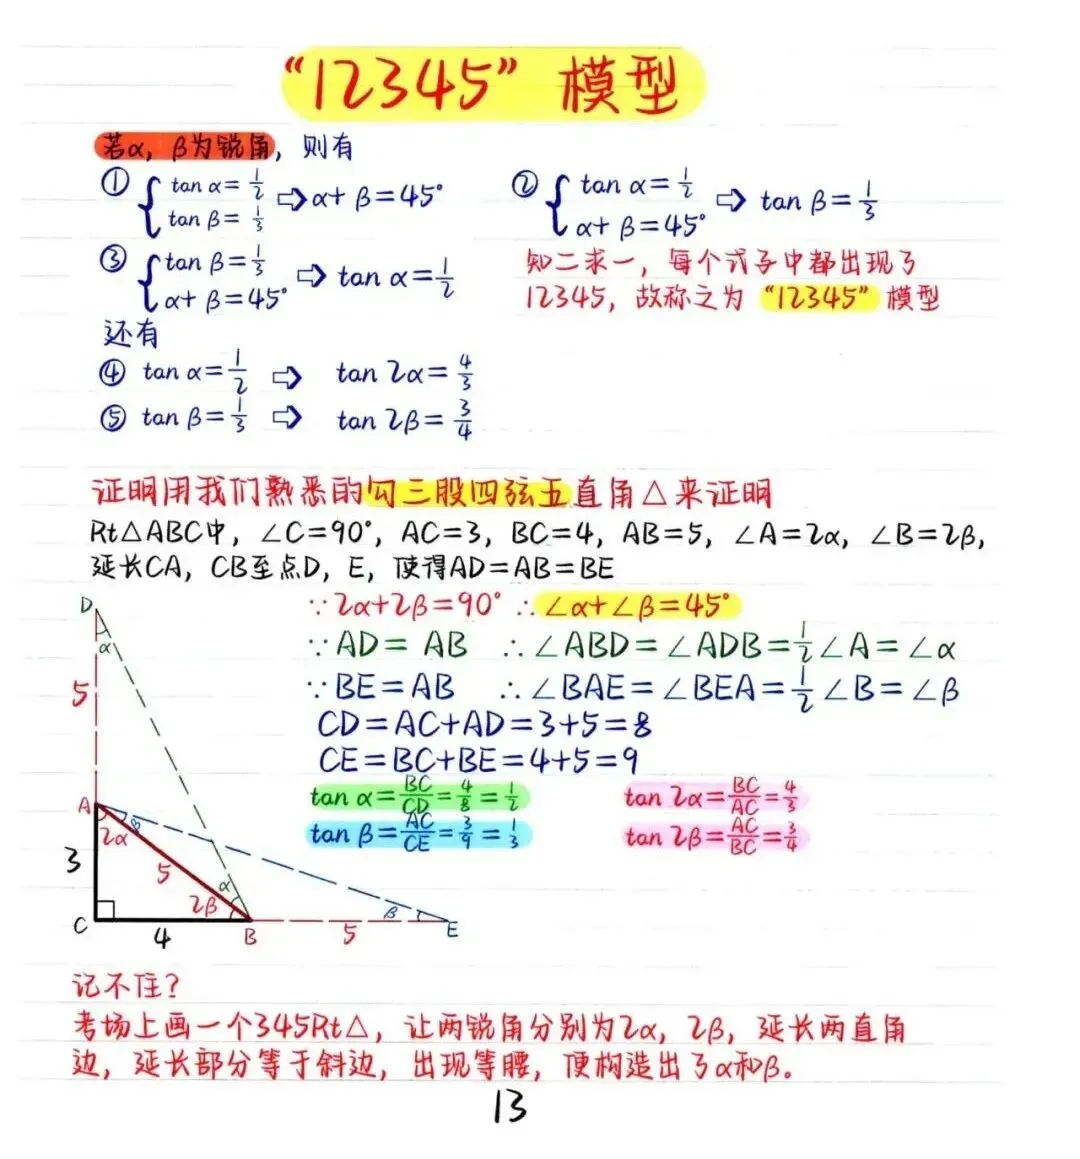 “12345” 模型
若α, β为锐角, 则有
① { tan α=1/2 tan β=1/3 ⇨ α+β=45°
② { tan α=1/2 α+β=45° ⇨ tan β=1/3
③ { tan β=1/3 α+β=45° ⇨ tan α=1/2
知二求一, 每个式子中都出现了
12345, 故称之为 “12345” 模型
还有
④ tan α=1/2 ⇨ tan 2α=4/3
⑤ tan β=1/3 ⇨ tan 2β=3/4
证明用我们熟悉的勾三股四弦五直角△来证明
Rt△ABC中, ∠C=90°, AC=3, BC=4, AB=5, ∠A=2α, ∠B=2β,
延长CA, CB至点D, E, 使得AD=AB=BE
∵2α+2β=90° ∴∠α+∠β=45°
∵AD=AB ∴∠ABD=∠ADB=1/2∠A=∠α
∵BE=AB ∴∠BAE=∠BEA=1/2∠B=∠β
CD=AC+AD=3+5=8
CE=BC+BE=4+5=9
tan α=BC/CD=4/8=1/2
tan 2α=BC/AC=4/3
tan β=AC/CE=3/9=1/3
tan 2β=AC/BC=3/4
D
α
5
A
β
2α
3
5
α
2β
β
C
4
B
5
E
记不住?
考场上画一个345Rt△, 让两锐角分别为2α, 2β, 延长两直角
边, 延长部分等于斜边, 出现等腰, 便构造出了α和β。
13